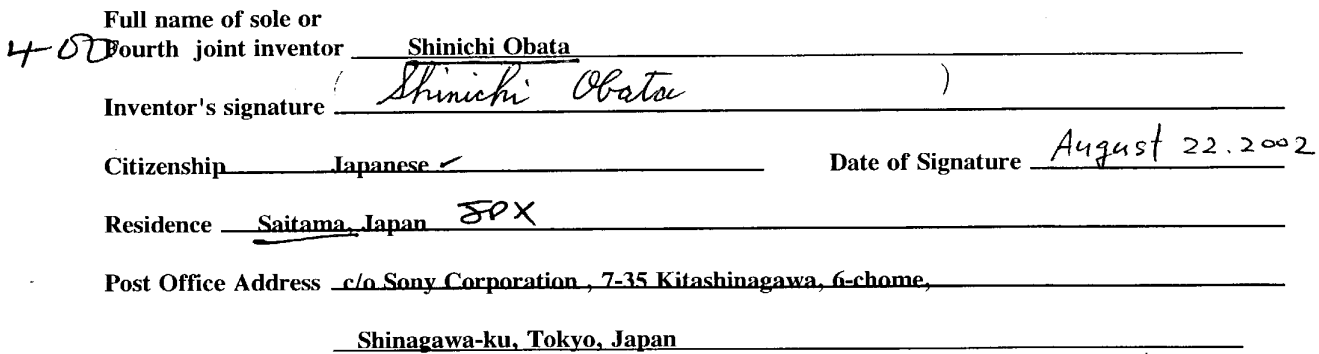 Full name of sole or
4-00 Fourth joint inventor Shinichi Obata
Inventor's signature ( Shinichi Obata )
Citizenship Japanese ✓ Date of Signature August 22. 2002
Residence Saitama, Japan JPX
Post Office Address c/o Sony Corporation , 7-35 Kitashinagawa, 6-chome,
Shinagawa-ku, Tokyo, Japan